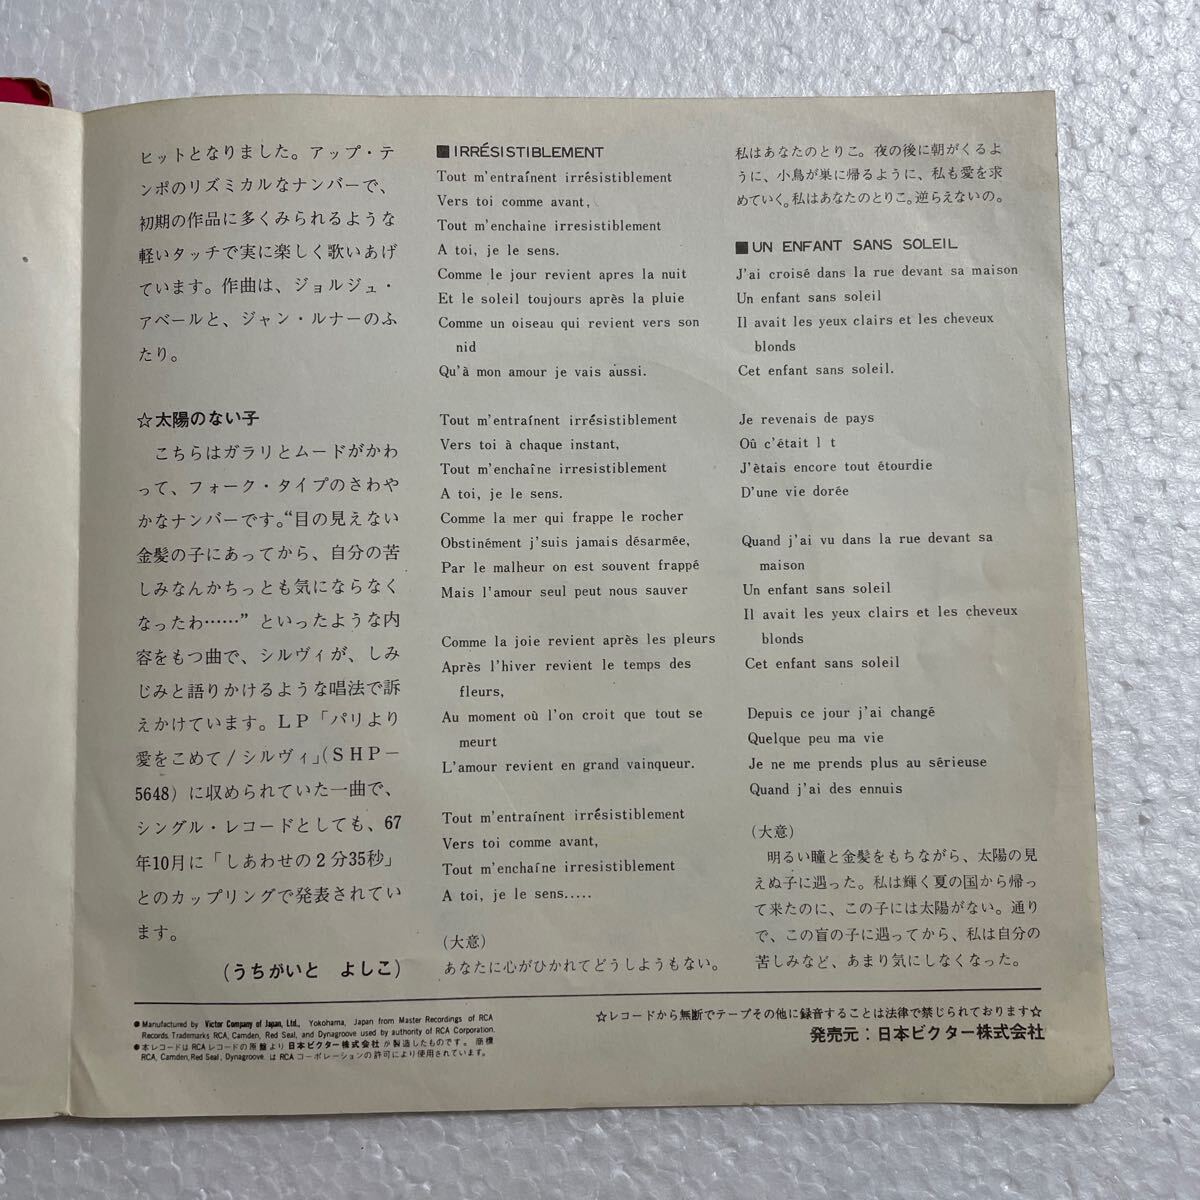 ヒットとなりました。アップ・テ
ンポのリズミカルなナンバーで、
初期の作品に多くみられるような
軽いタッチで実に楽しく歌いあげ
ています。作曲は、ジョルジュ・
アベールと、ジャン・ルナーのふ
たり。
☆太陽のない子
こちらはガラリとムードがかわ
って、フォーク・タイプのさわや
かなナンバーです。“目の見えない
金髪の子にあってから、自分の苦
しみなんかちっとも気にならなく
なったわ……” といったような内
容をもつ曲で、シルヴィが、しみ
じみと語りかけるような唱法で訴
えかけています。LP「パリより
愛をこめて/シルヴィ」(SHP−
5648) に収められていた一曲で、
シングル・レコードとしても、67
年10月に「しあわせの2分35秒」
とのカップリングで発表されてい
ます。
(うちがいと よしこ)
■ IRRÉSISTIBLEMENT
Tout m'entraînent irrésistiblement
Vers toi comme avant,
Tout m'enchaine irresistiblement
A toi, je le sens.
Comme le jour revient apres la nuit
Et le soleil toujours après la pluie
Comme un oiseau qui revient vers son
nid
Qu'à mon amour je vais aussi.
Tout m'entraînent irrésistiblement
Vers toi à chaque instant,
Tout m'enchaîne irresistiblement
A toi, je le sens.
Comme la mer qui frappe le rocher
Obstinément j'suis jamais désarmée,
Par le malheur on est souvent frappé
Mais l'amour seul peut nous sauver
Comme la joie revient après les pleurs
Après l'hiver revient le temps des
fleurs,
Au moment où l'on croit que tout se
meurt
L'amour revient en grand vainqueur.
Tout m'entraînent irrésistiblement
Vers toi comme avant,
Tout m'enchaîne irresistiblement
A toi, je le sens.....
(大意)
あなたに心がひかれてどうしようもない。
私はあなたのとりこ。夜の後に朝がくるよ
うに、小鳥が巣に帰るように、私も愛を求
めていく。私はあなたのとりこ。逆らえないの。
■ UN ENFANT SANS SOLEIL
J'ai croisé dans la rue devant sa maison
Un enfant sans soleil
Il avait les yeux clairs et les cheveux
blonds
Cet enfant sans soleil.
Je revenais de pays
Oû c'était l t
J'ètais encore tout étourdie
D'une vie dorée
Quand j'ai vu dans la rue devant sa
maison
Un enfant sans soleil
Il avait les yeux clairs et les cheveux
blonds
Cet enfant sans soleil
Depuis ce jour j'ai changé
Quelque peu ma vie
Je ne me prends plus au sérieuse
Quand j'ai des ennuis
(大意)
明るい瞳と金髪をもちながら、太陽の見
えぬ子に遇った。私は輝く夏の国から帰っ
て来たのに、この子には太陽がない。通り
で、この盲の子に遇ってから、私は自分の
苦しみなど、あまり気にしなくなった。
● Manufactured by Victor Company of Japan, Ltd., Yokohama, Japan from Master Recordings of RCA
Records. Trademarks RCA, Camden, Red Seal, and Dynagroove used by authority of RCA Corporation.
● 本レコードは RCA レコードの原盤より 日本ビクター株式会社 が製造したものです。 商標
RCA, Camden, Red Seal, Dynagroove は RCA コーポレーションの許可により使用されています。
☆レコードから無断でテープその他に録音することは法律で禁じられております☆
発売元:日本ビクター株式会社